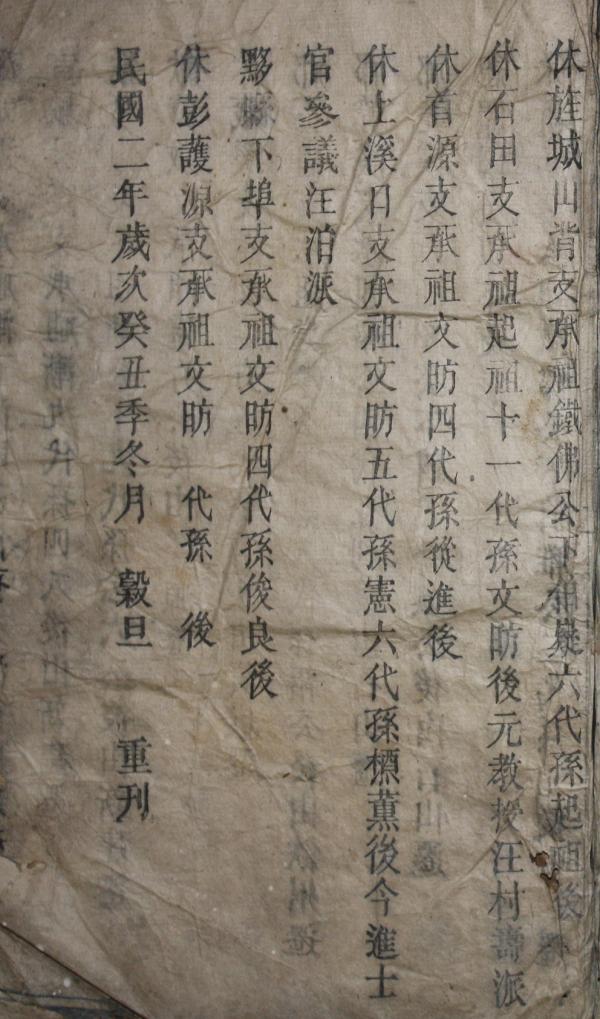 休旌城山背支承祖鐵佛公下祖疑六代孫起祖後
休石田支承祖起祖十一代孫文昉後元教授汪村壽派
休首源支承祖文昉四代孫從進後
休上溪口支承祖文昉五代孫憲六代孫櫄薰後今進士
官參議汪泊派
黟縣下埠支承祖文昉四代孫俊良後
休彭護源支承祖文昉 代孫 後
民國二年歲次癸丑季冬月 穀旦 重刊